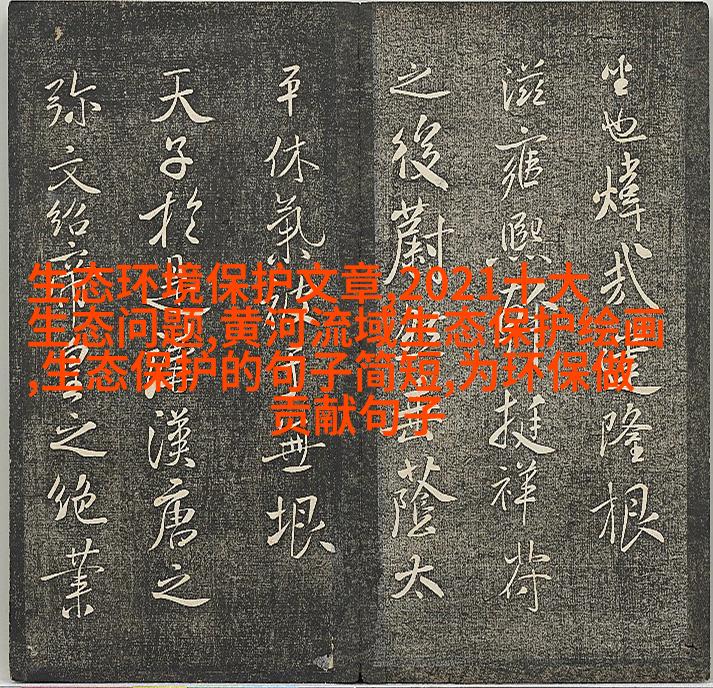 也煒哉隆根
滋雍熙挺祥符
之後蔚垂蔭太
平休氣無垠
天子於是漢唐之
弥文紹帝皇之絶業
生态环境保护文章,2021十大
生态问题,黄河流域生态保护绘画
,生态保护的句子简短,为环保做
贡献句子